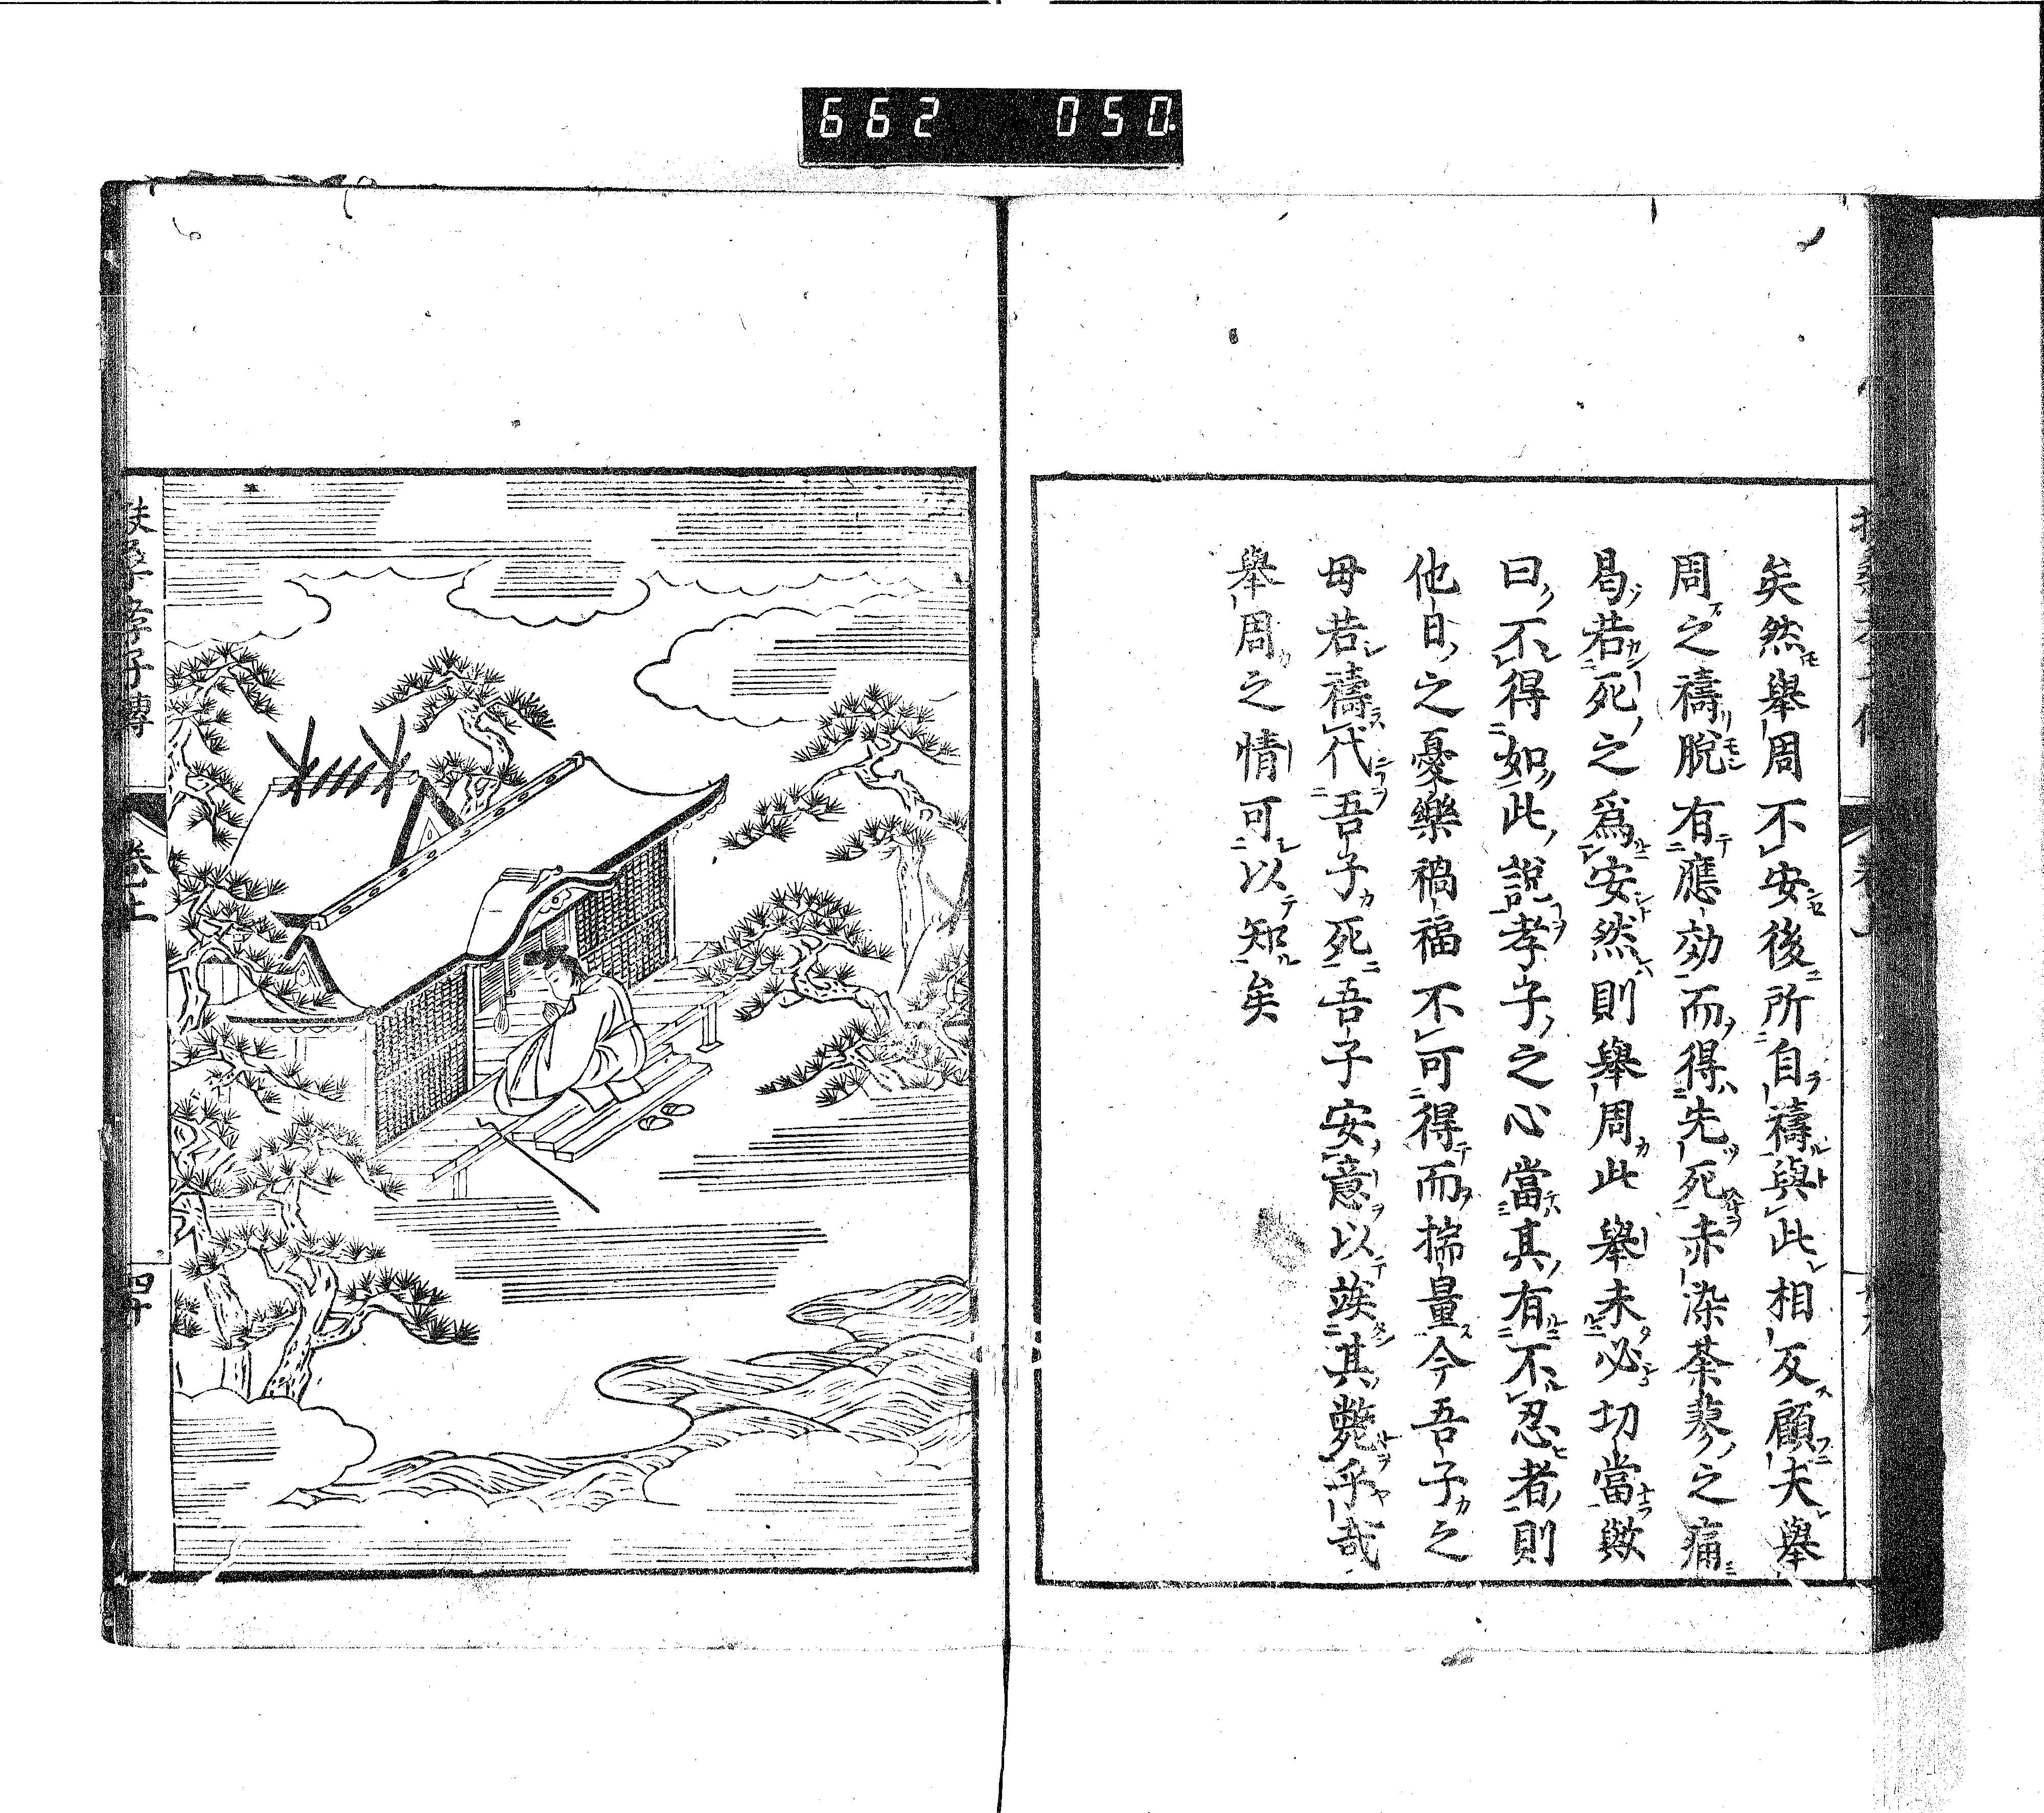 662 050
矣然舉周不安後所自禱與此相反顧夫舉
周之禱脫有應効而得先死亦染荼蓼之痛
曷若死之爲安然則舉周此舉未必切當歟
曰不得如此說孝子之心當其有不忍者則
他日之憂樂禍福不可得而揣量今吾子之
母若禱代吾子死吾子安意以竢其斃乎哉
舉周之情可以知矣
扶桑孝子傳
卷上
四十